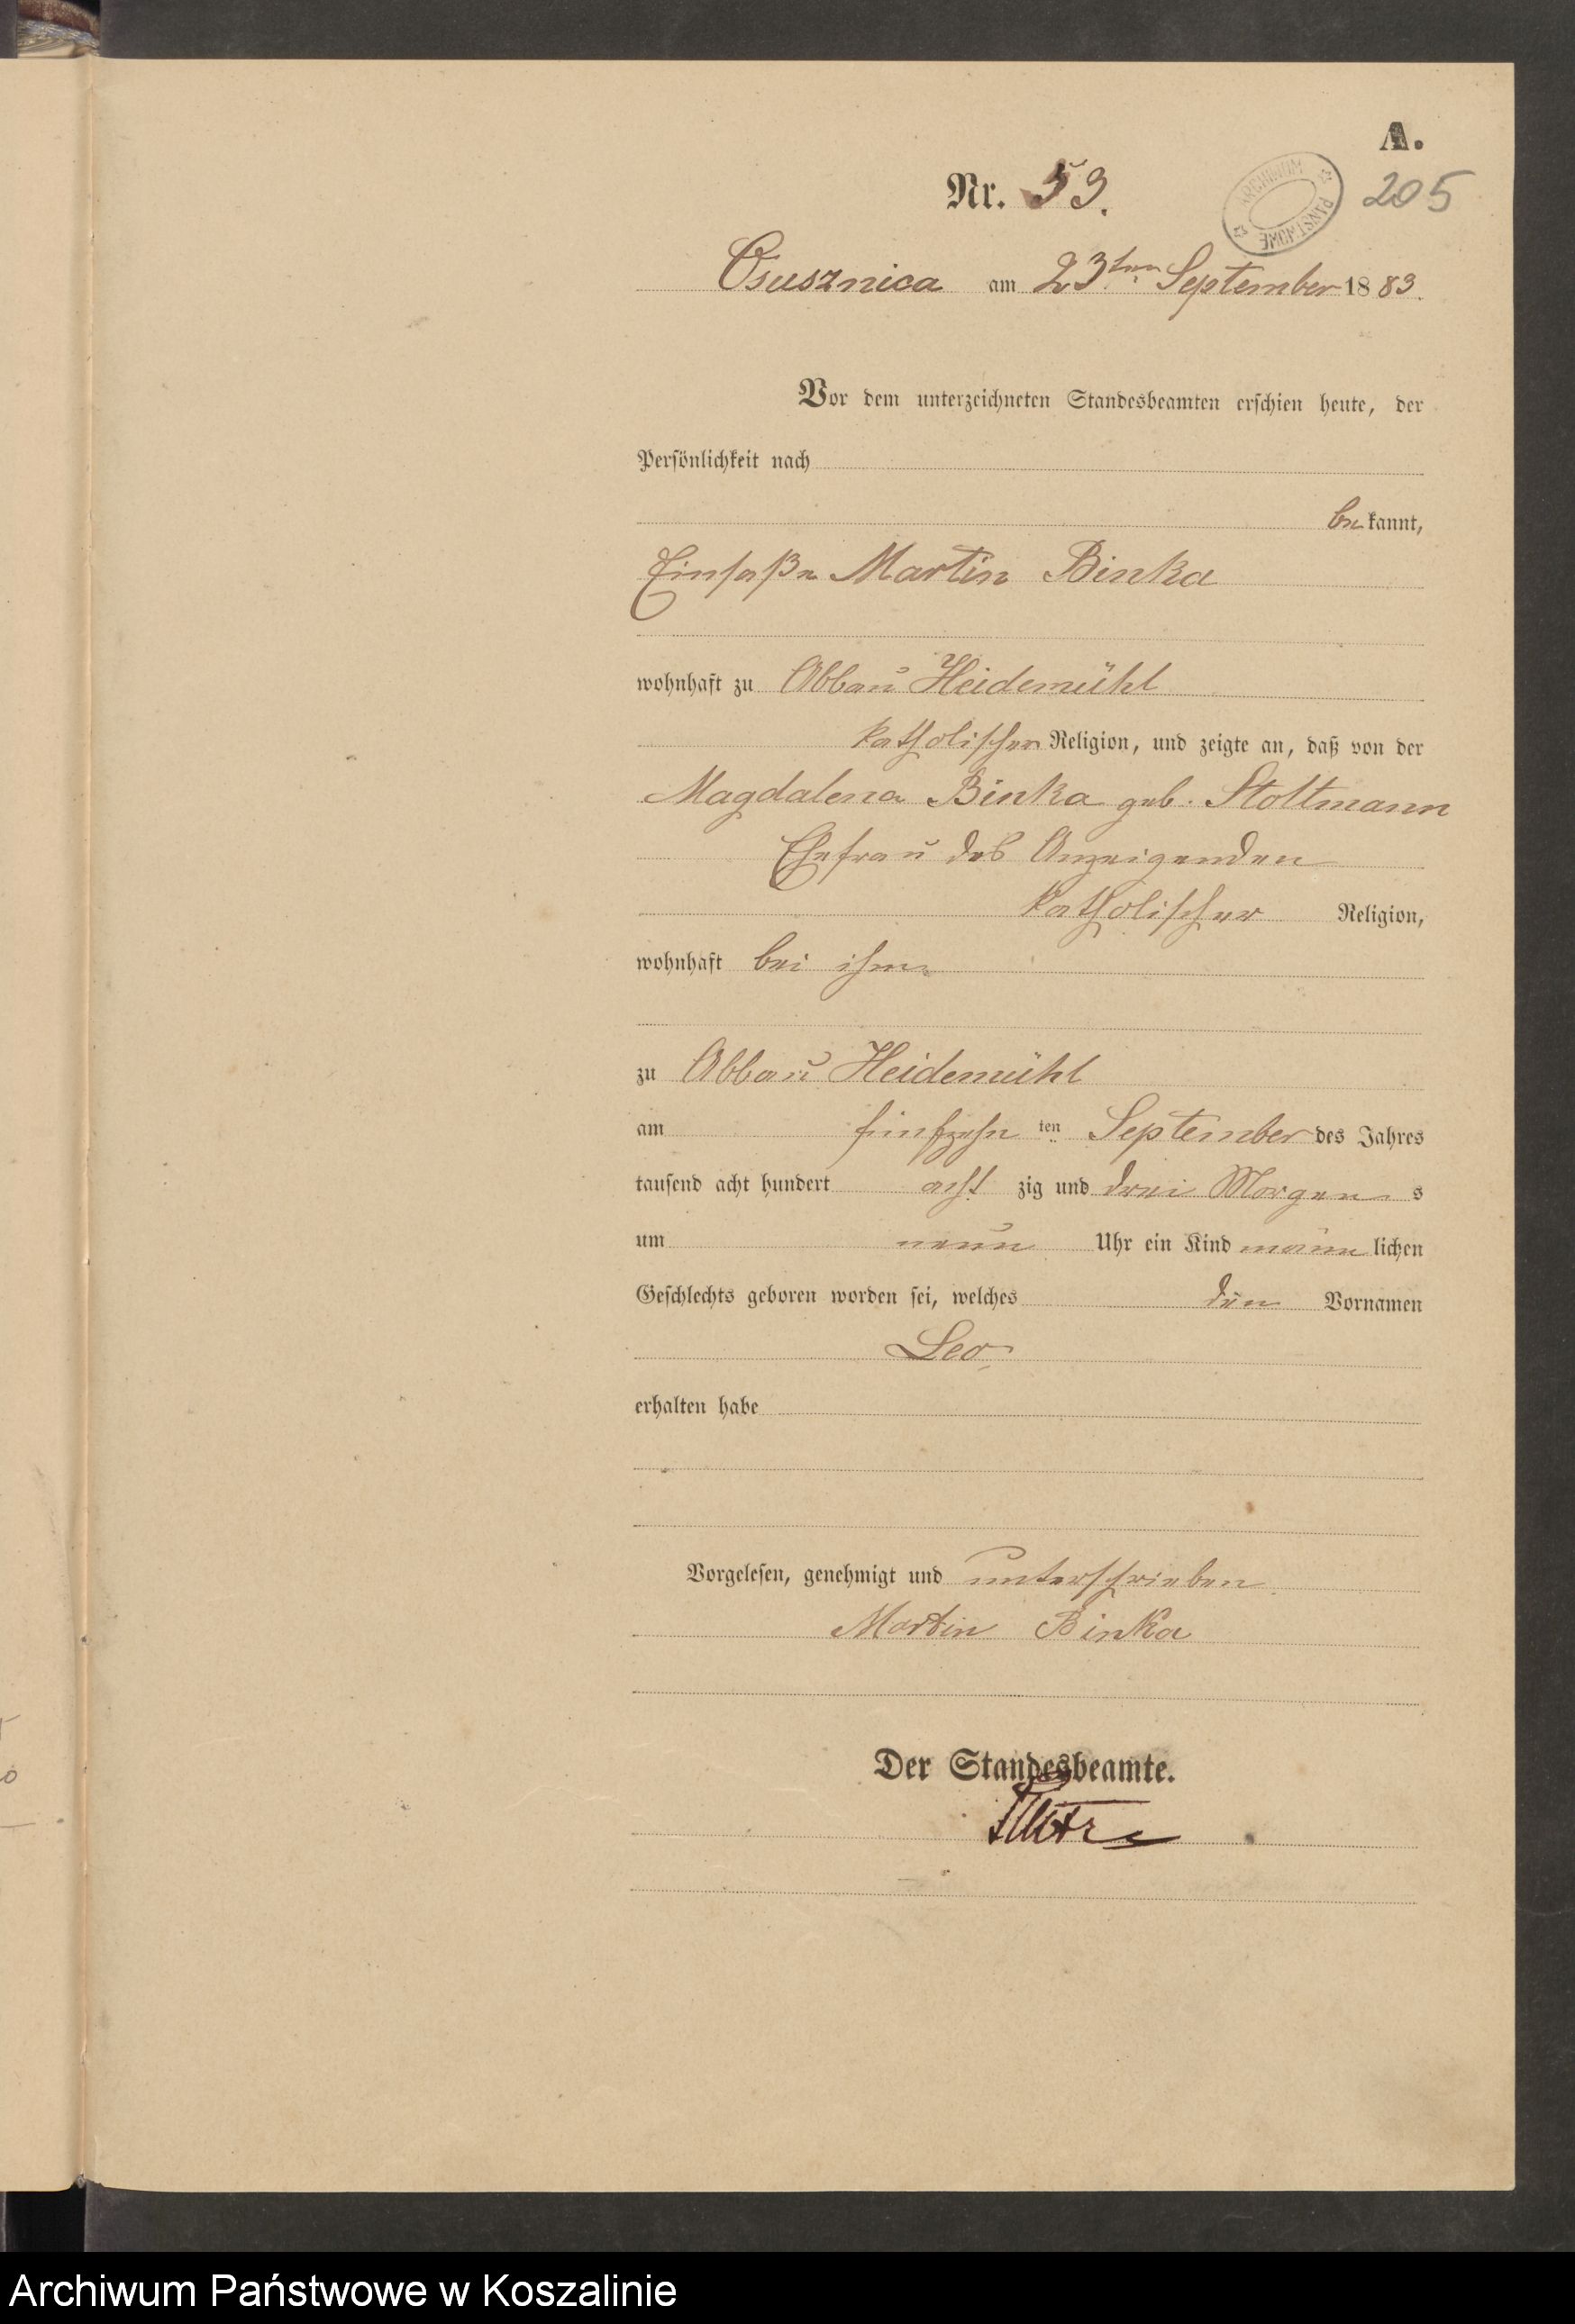 A.
205
ARCHIWUM PAŃSTWOWE
Nr. 53.
Osusznica am 23ten September 1883.
Vor dem unterzeichneten Standesbeamten erschien heute, der
Persönlichkeit nach
bekannt,
Einsaße Martin Binka
wohnhaft zu Abbau Heidemühl
katholischer Religion, und zeigte an, daß von der
Magdalena Binka geb. Stoltmann
Ehefrau des Anzeigenden
katholischer Religion,
wohnhaft bei ihm
zu Abbau Heidemühl
am fünfzehnten September des Jahres
tausend acht hundert achtzig und drei Morgens
um neun Uhr ein Kind männlichen
Geschlechts geboren worden sei, welches den Vornamen
Leo
erhalten habe
Vorgelesen, genehmigt und unterschrieben
Martin Binka
Der Standesbeamte.
Archiwum Państwowe w Koszalinie